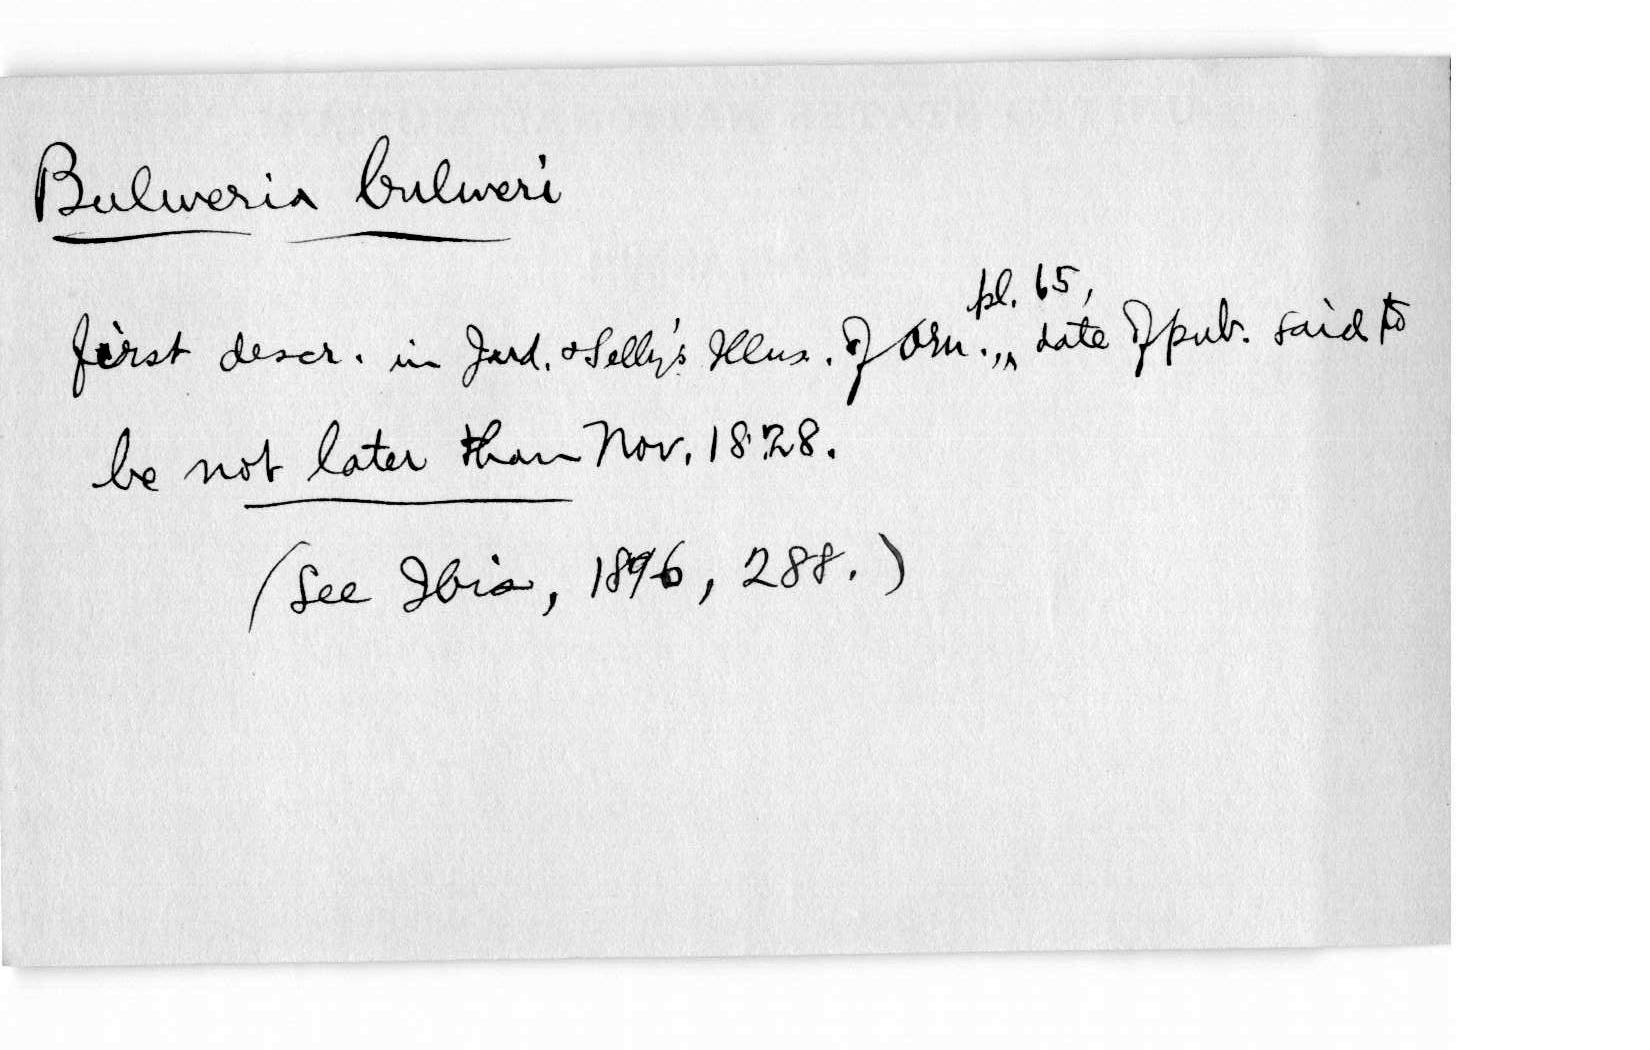 Bulweria bulweri
first descr. in Jard. & Selby's Illus. of Orn., pl. 65, date of pub. said to
be not later than Nov. 1828.
(See Ibis, 1896, 288.)